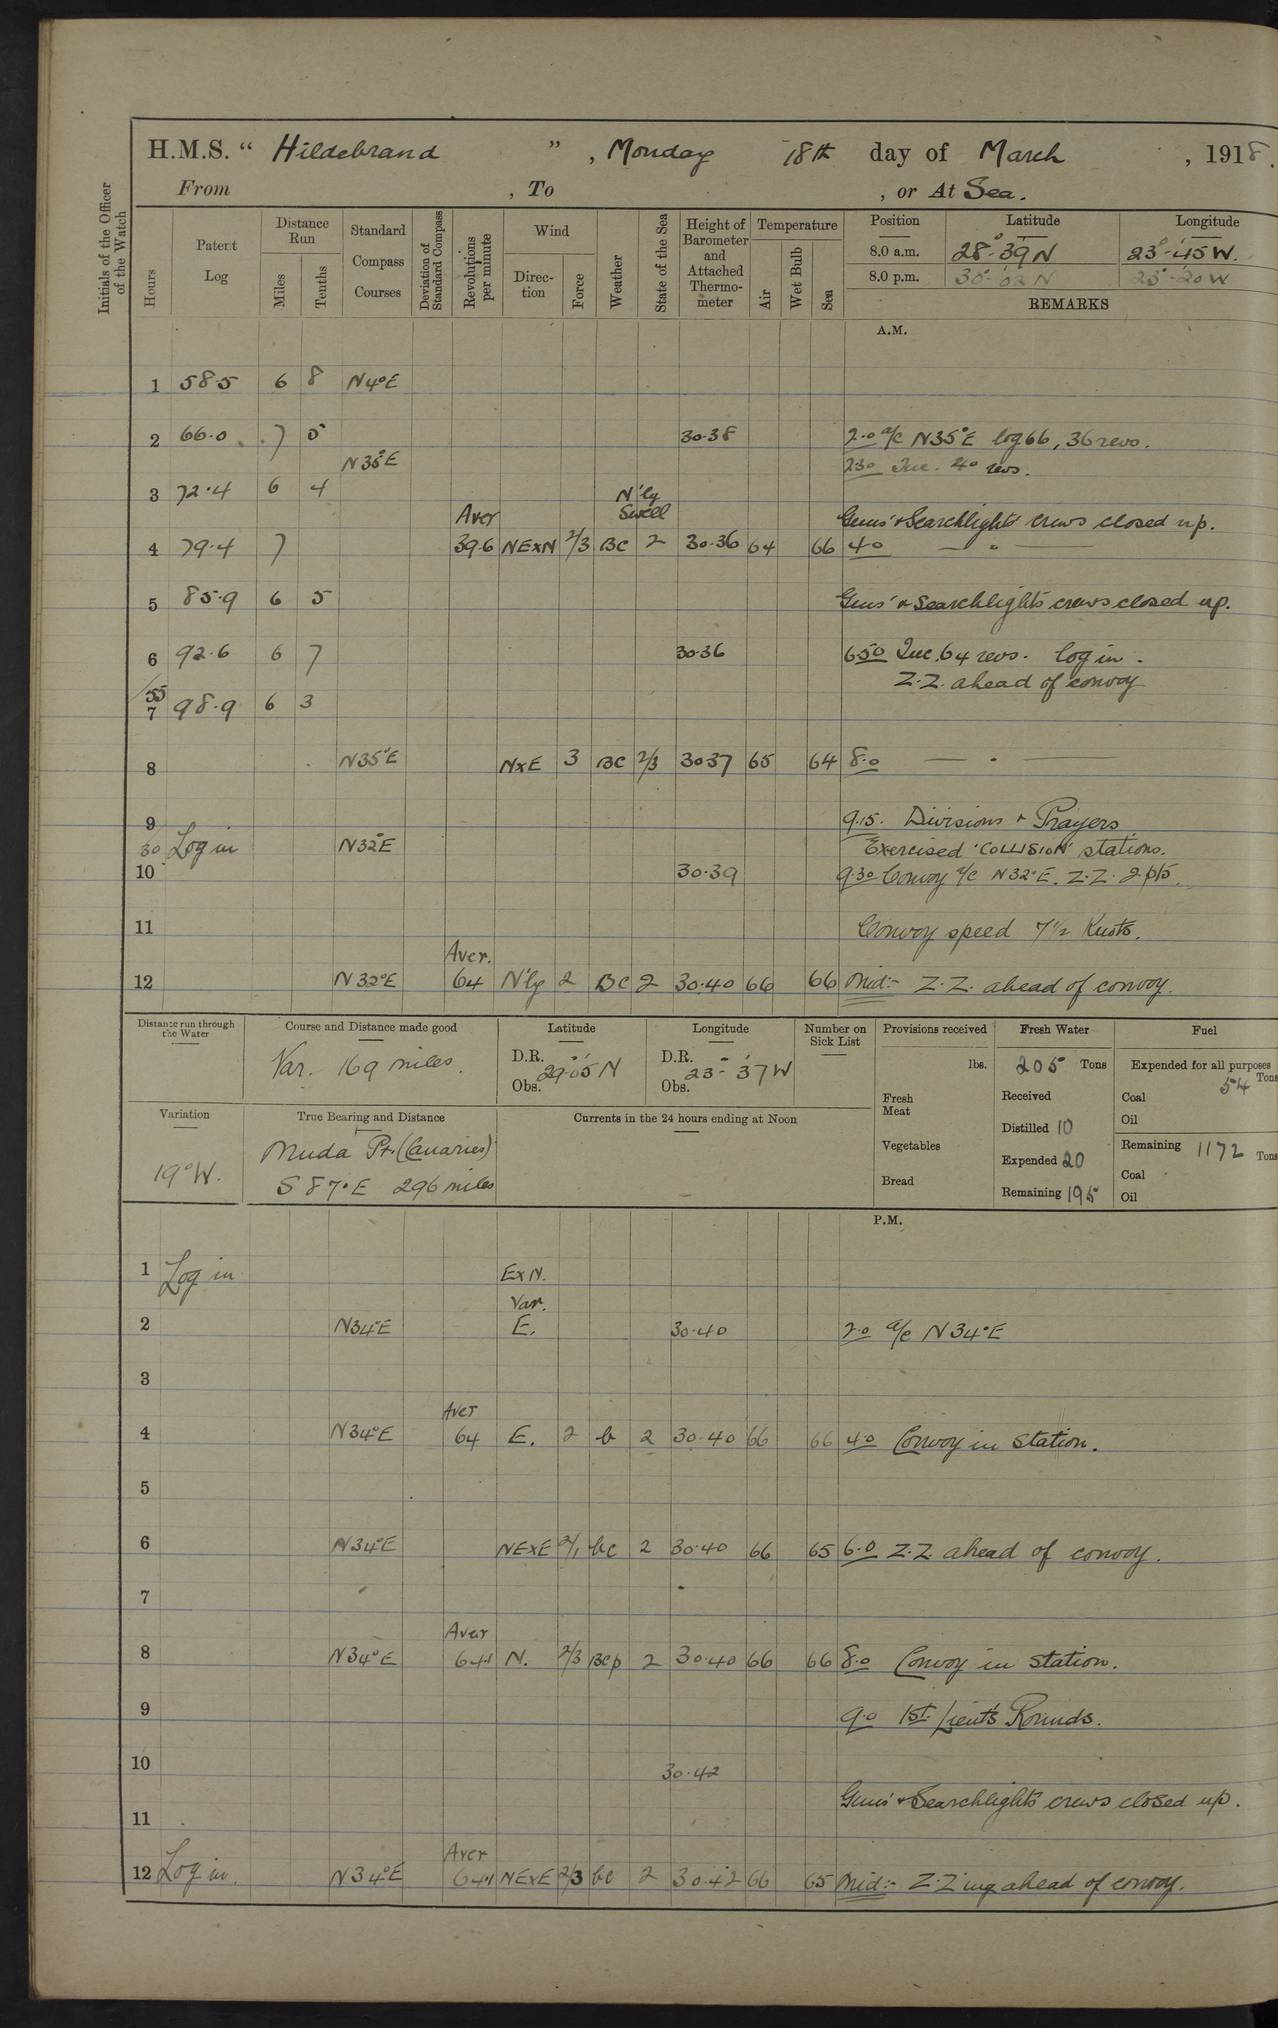 H.M.S. “ Hildebrand ” , Monday 18th day of March , 1918.
From , To , or At Sea.
Initials of the Officer of the Watch
Hours
Patent Log
Distance Run
Miles
Tenths
Standard Compass Courses
Deviation of Standard Compass
Revolutions per minute
Wind
Direction
Force
Weather
State of the Sea
Height of Barometer and Attached Thermometer
Temperature
Air
Wet Bulb
Sea
Position Latitude Longitude
8.0 a.m. 28°-39'N 23°-45'W.
8.0 p.m. 30°-02'N 23°-20'W
REMARKS
A.M.
1 58.5 6 8 N4°E
2 66.0 7 5 30.38 2.0 a/c N35°E log 66, 36 revs.
N35°E 2.30 Inc. 40 revs.
3 72.4 6 4 N'ly Swell
Aver Guns' & Searchlights' crews closed up.
4 79.4 7 39.6 NExN 2/3 BC 2 30.36 64 66 4.0 — " —
5 85.9 6 5 Guns' & Searchlights crews closed up.
6 92.6 6 7 30.36 6.50 Inc. 64 revs. log in.
Z.Z. ahead of convoy
55
7 98.9 6 3
8 N35°E NxE 3 BC 2/3 30.37 65 64 8.0 — " —
9 9.15. Divisions & Prayers
30 Log in N32°E Exercised 'COLLISION' stations.
10 30.39 9.30 Convoy a/c N32°E. Z.Z. 2 pts.
11 Convoy speed 7 1/2 Knots.
Aver.
12 N32°E 64 N'ly 2 BC 2 30.40 66 66 Mid:- Z.Z. ahead of convoy.
Distance run through the Water
Course and Distance made good
Var. 169 miles.
Latitude
D.R.
Obs. 29°-05'N
Longitude
D.R.
Obs. 23°-37'W
Number on Sick List
Provisions received
lbs.
Fresh Meat
Vegetables
Bread
Fresh Water
205 Tons
Received
Distilled 10
Expended 20
Remaining 195
Fuel
Expended for all purposes
54 Tons
Coal
Oil
Remaining 1172 Tons
Coal
Oil
Variation
19°W.
True Bearing and Distance
Muda Pt. (Canaries)
S 87°E 296 miles
Currents in the 24 hours ending at Noon
P.M.
1 Log in ExN.
Var.
2 N34°E E. 30.40 2.0 a/c N34°E
3
Aver
4 N34°E 64 E. 2 b 2 30.40 66 66 4.0 Convoy in station.
5
6 N34°E NExE 2/1 bc 2 30.40 66 65 6.0 Z.Z. ahead of convoy.
7
Aver
8 N34°E 64.1 N. 2/3 Bcp 2 30.40 66 66 8.0 Convoy in station.
9 9.0 1st. Lieut's Rounds.
10 30.42
Guns' & Searchlights crews closed up.
11
Aver
12 Log in. N34°E 64.1 NExE 2/3 bc 2 30.42 66 65 Mid:- Z.Z'ing ahead of convoy.